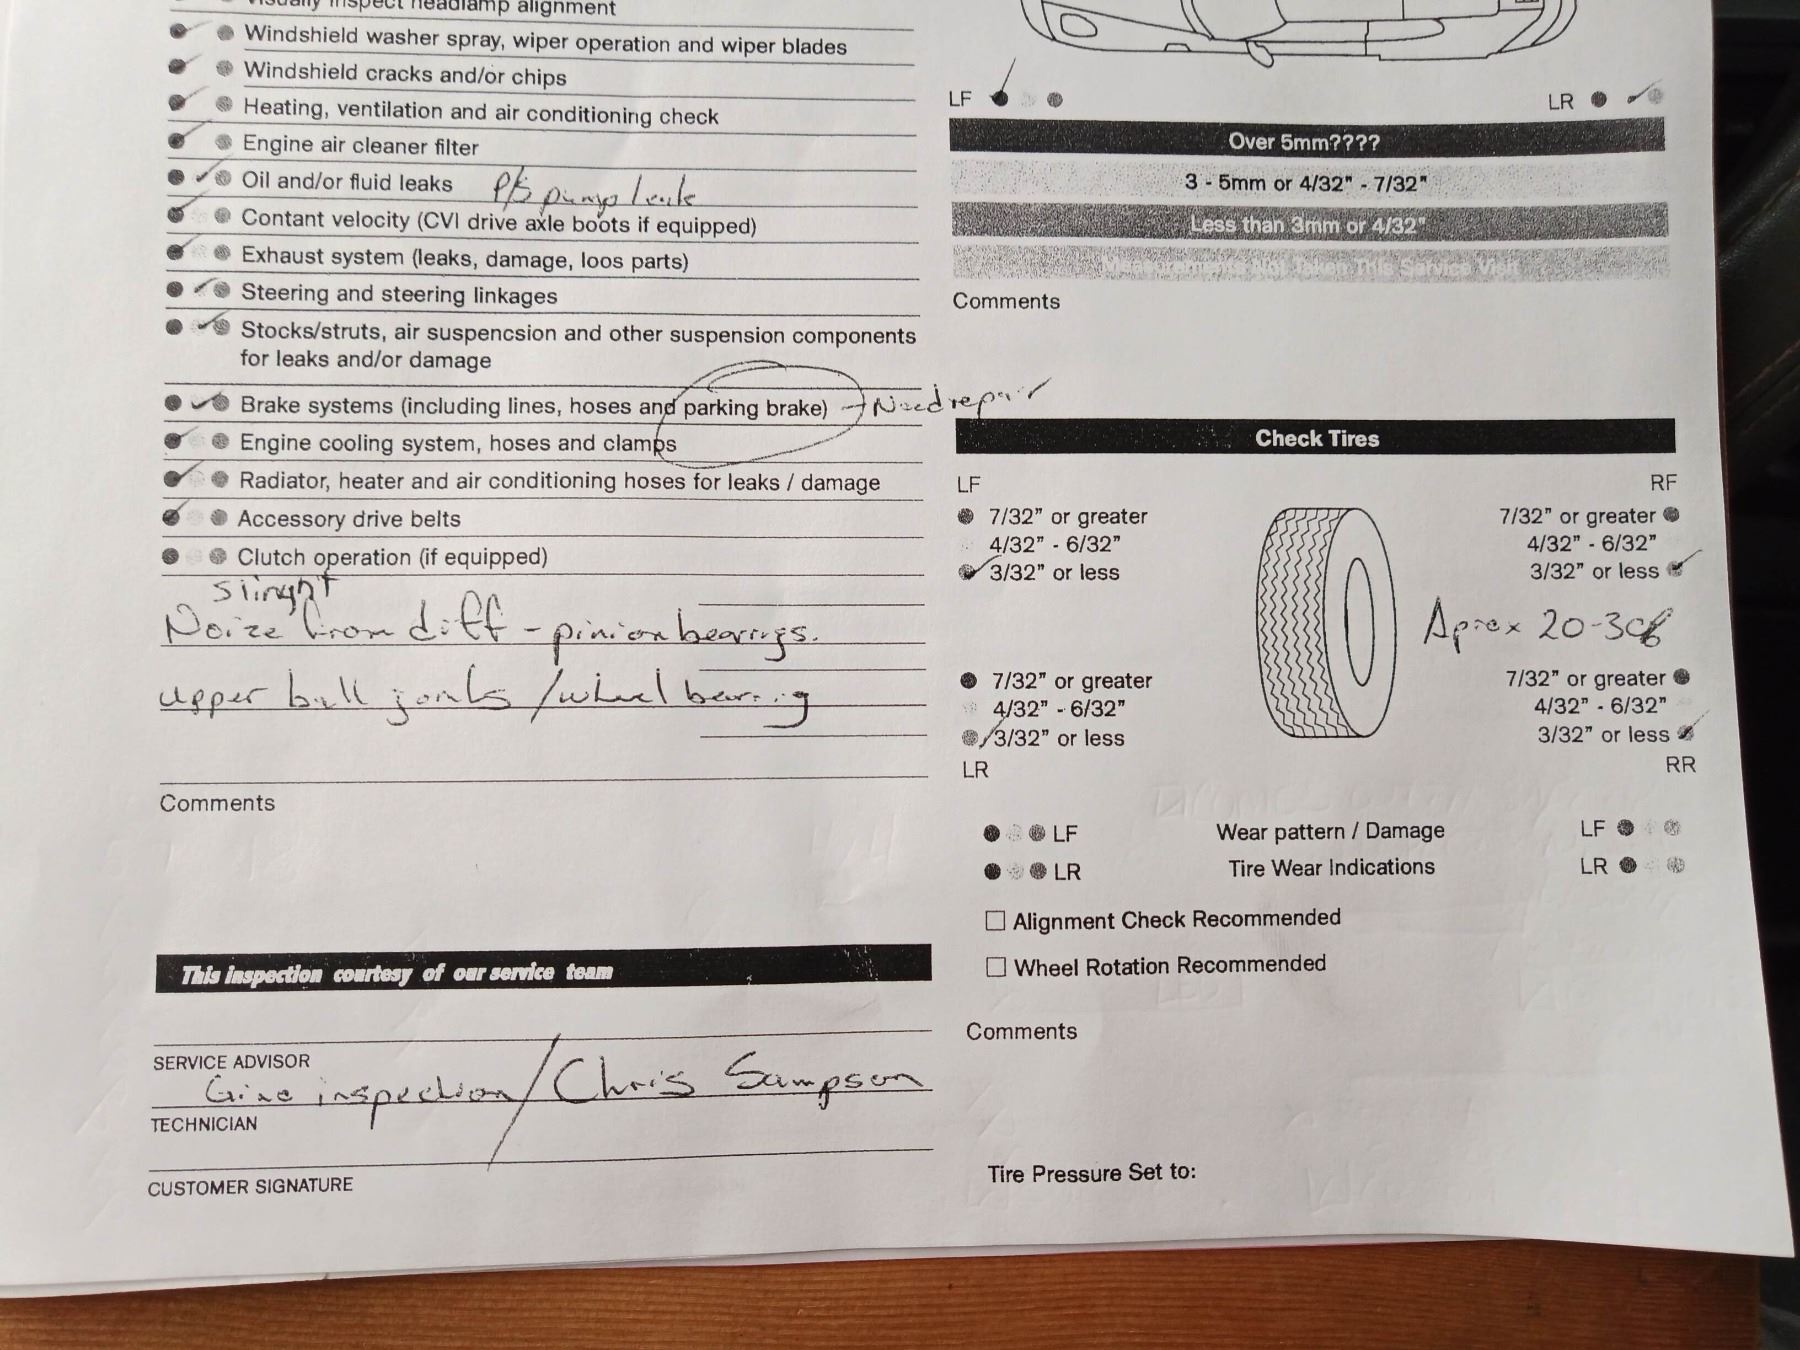 Visually inspect headlamp alignment
Windshield washer spray, wiper operation and wiper blades
Windshield cracks and/or chips
Heating, ventilation and air conditioning check
Engine air cleaner filter
Oil and/or fluid leaks P/S pump leak
Contant velocity (CVI drive axle boots if equipped)
Exhaust system (leaks, damage, loos parts)
Steering and steering linkages
Stocks/struts, air suspencsion and other suspension components
for leaks and/or damage
Brake systems (including lines, hoses and parking brake) - Need repair
Engine cooling system, hoses and clamps
Radiator, heater and air conditioning hoses for leaks / damage
Accessory drive belts
Clutch operation (if equipped)
slinght
Noize from diff - pinion bearings.
upper ball joints / wheel bearing
Comments
This inspection courtesy of our service team
SERVICE ADVISOR
inspection / Chris Sampson
TECHNICIAN
CUSTOMER SIGNATURE
LF
LR
Over 5mm????
3 - 5mm or 4/32" - 7/32"
Less than 3mm or 4/32"
Measurements Not Taken This Service Visit
Comments
Check Tires
LF
RF
7/32" or greater
7/32" or greater
4/32" - 6/32"
4/32" - 6/32"
3/32" or less
3/32" or less
Aprox
7/32" or greater
7/32" or greater
4/32" - 6/32"
4/32" - 6/32"
3/32" or less
3/32" or less
LR
RR
LF Wear pattern / Damage LF
LR Tire Wear Indications LR
Alignment Check Recommended
Wheel Rotation Recommended
Comments
Tire Pressure Set to: